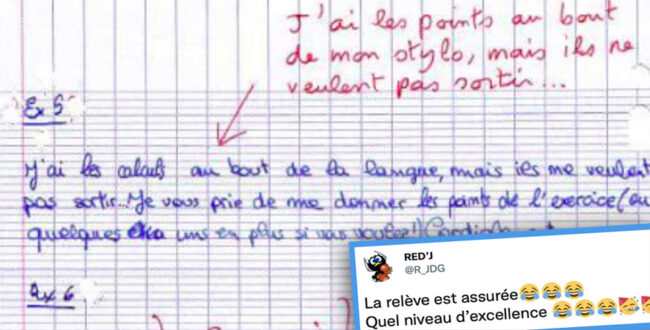 J'ai les points au bout
de mon stylo, mais ils ne
veulent pas sortir...
Ex 5
J'ai les calculs au bout de la langue, mais ils me veulent
pas sortir...Je vous prie de me donner les points de l'exercice (ou
quelques uns en plus si vous voulez!)
Ex 6
RED'J
@R_JDG
La relève est assurée😂😂😂
Quel niveau d'excellence 😂😂😂🎉🎉